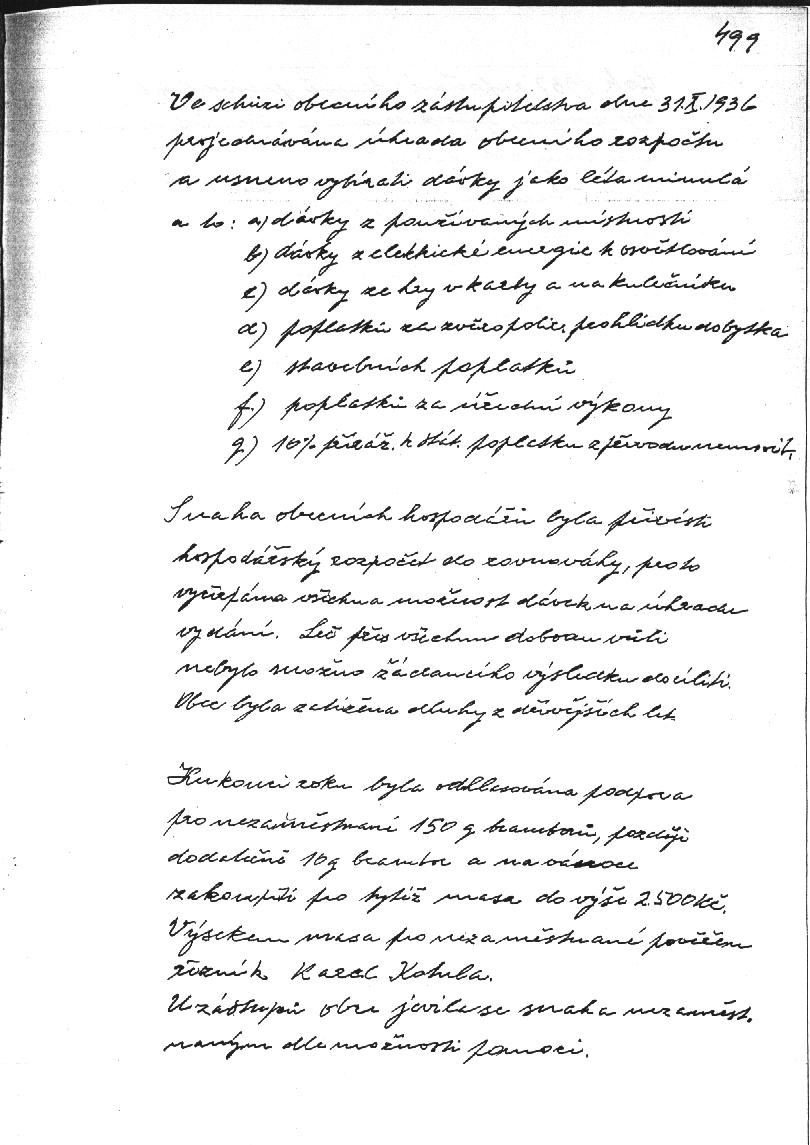 499
Ve schůzi obecního zastupitelstva dne 31.X.1936
projednávána úhrada obecního rozpočtu
a usneno vybírati dávky jako léta minulá
a to: a) dávky z používaných místností
b) dávky z elektrické energie k osvětlování
c) dávky ze hry v karty a na kulečníku
d) poplatků za zvěropolic. prohlídku dobytka
e) stavebních poplatků
f.) poplatků za úřední výkony
g.) 10% přiráž. k stát. poplatku z převodu nemovit.
Snaha obecních hospodářů byla přivésti
hospodářský rozpočet do rovnováhy, proto
vyčerpána všechna možnost dávek na úhradu
vydání. Leč přes všechnu dobrou vůli
nebylo možno žádoucího výsledku docíliti.
Obec byla zatížena dluhy z dřívějších let
Ku konci roku byla odhlasována podpora
pro nezaměstnané 150 q brambor, později
dodatečně 10q brambor a na vánoce
zakoupiti pro tytéž masa do výše 2.500Kč.
Výsekem masa pro nezaměstnané pověřen
řezník Karel Kotula.
U zástupců obce jevila se snaha nezaměst.
naným dle možnosti pomoci.